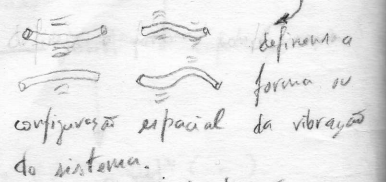 definem a
forma ou
configuração espacial da vibração
do sistema.